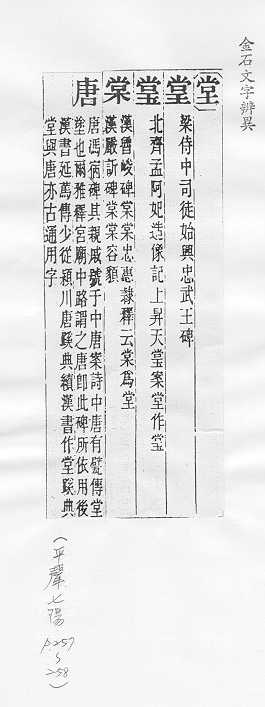 金石文字辨異
堂
堂 梁侍中司徒始興忠武王碑
坣 北齊孟阿妃造像記上昇天坣案堂作坣
棠 漢魯峻碑棠棠忠惠隸釋云棠為堂
漢嚴訢碑棠棠容貌
唐 唐馮宿碑其親戚號于中唐案詩中唐有甓傳堂
塗也爾雅釋宮廟中路謂之唐即此碑所依用後
漢書延篤傳少從潁川唐溪典續漢書作堂谿典
堂與唐亦古通用字
(平聲七陽
p.257
~
258)